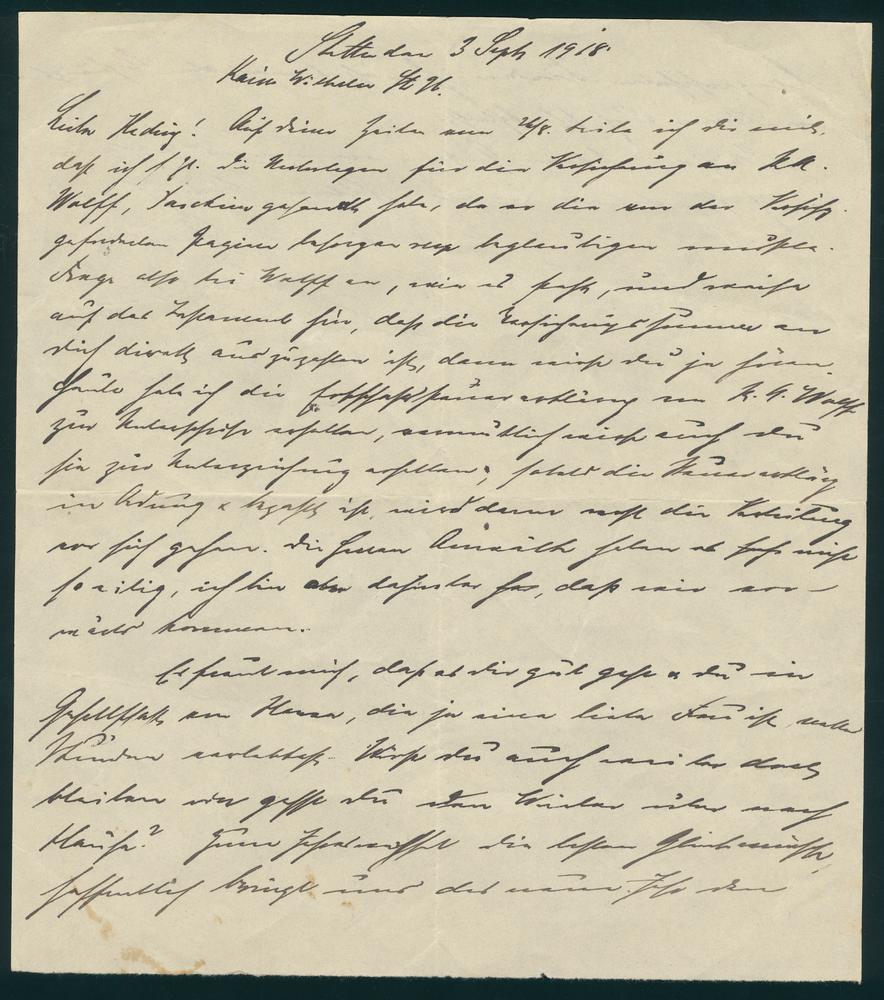 Stettin den 3 Sept 1918.
Kaiser Wilhelm St 96.
Liebe Hedwig! Auf deine Zeilen vom 26/8. teile ich dir mit,
daß ich s. Zt. die Unterlagen für die Versicherung an RA.
Wolff, gesandt habe, da er die von der Versich.
geforderten Papiere besorgen resp beglaubigen mußte.
Frage also bei Wolff an, wie es steht, und weise
auf das Testament hin, daß die Versicherungssumme an
dich direkt auszuzahlen ist, dann wirst du ja hören.
Heute habe ich die Erbschaftssteuererklärung von R. A. Wolff
zur Unterschrift erhalten, vermutlich wirst auch du
sie zur Unterzeichnung erhalten, sobald die Steuererklärg
in Ordnung & bezahlt ist, wird dann wohl die Verteilung
vor sich gehen. Die Herren Anwälte haben es halt nicht
so eilig, ich bin aber dahinter her, daß wir vor-
wärts kommen.
Es freut mich, daß es dir gut geht & du in
Gesellschaft von, die ja eine liebe Frau ist, nette
Stunden verlebtest. Wirst du auch weiter dort
bleiben oder gehst du den Winter über nach
Hause? Zum Jahreswechsel die besten Glückwünsche,
hoffentlich bringt uns das neue Jahr den